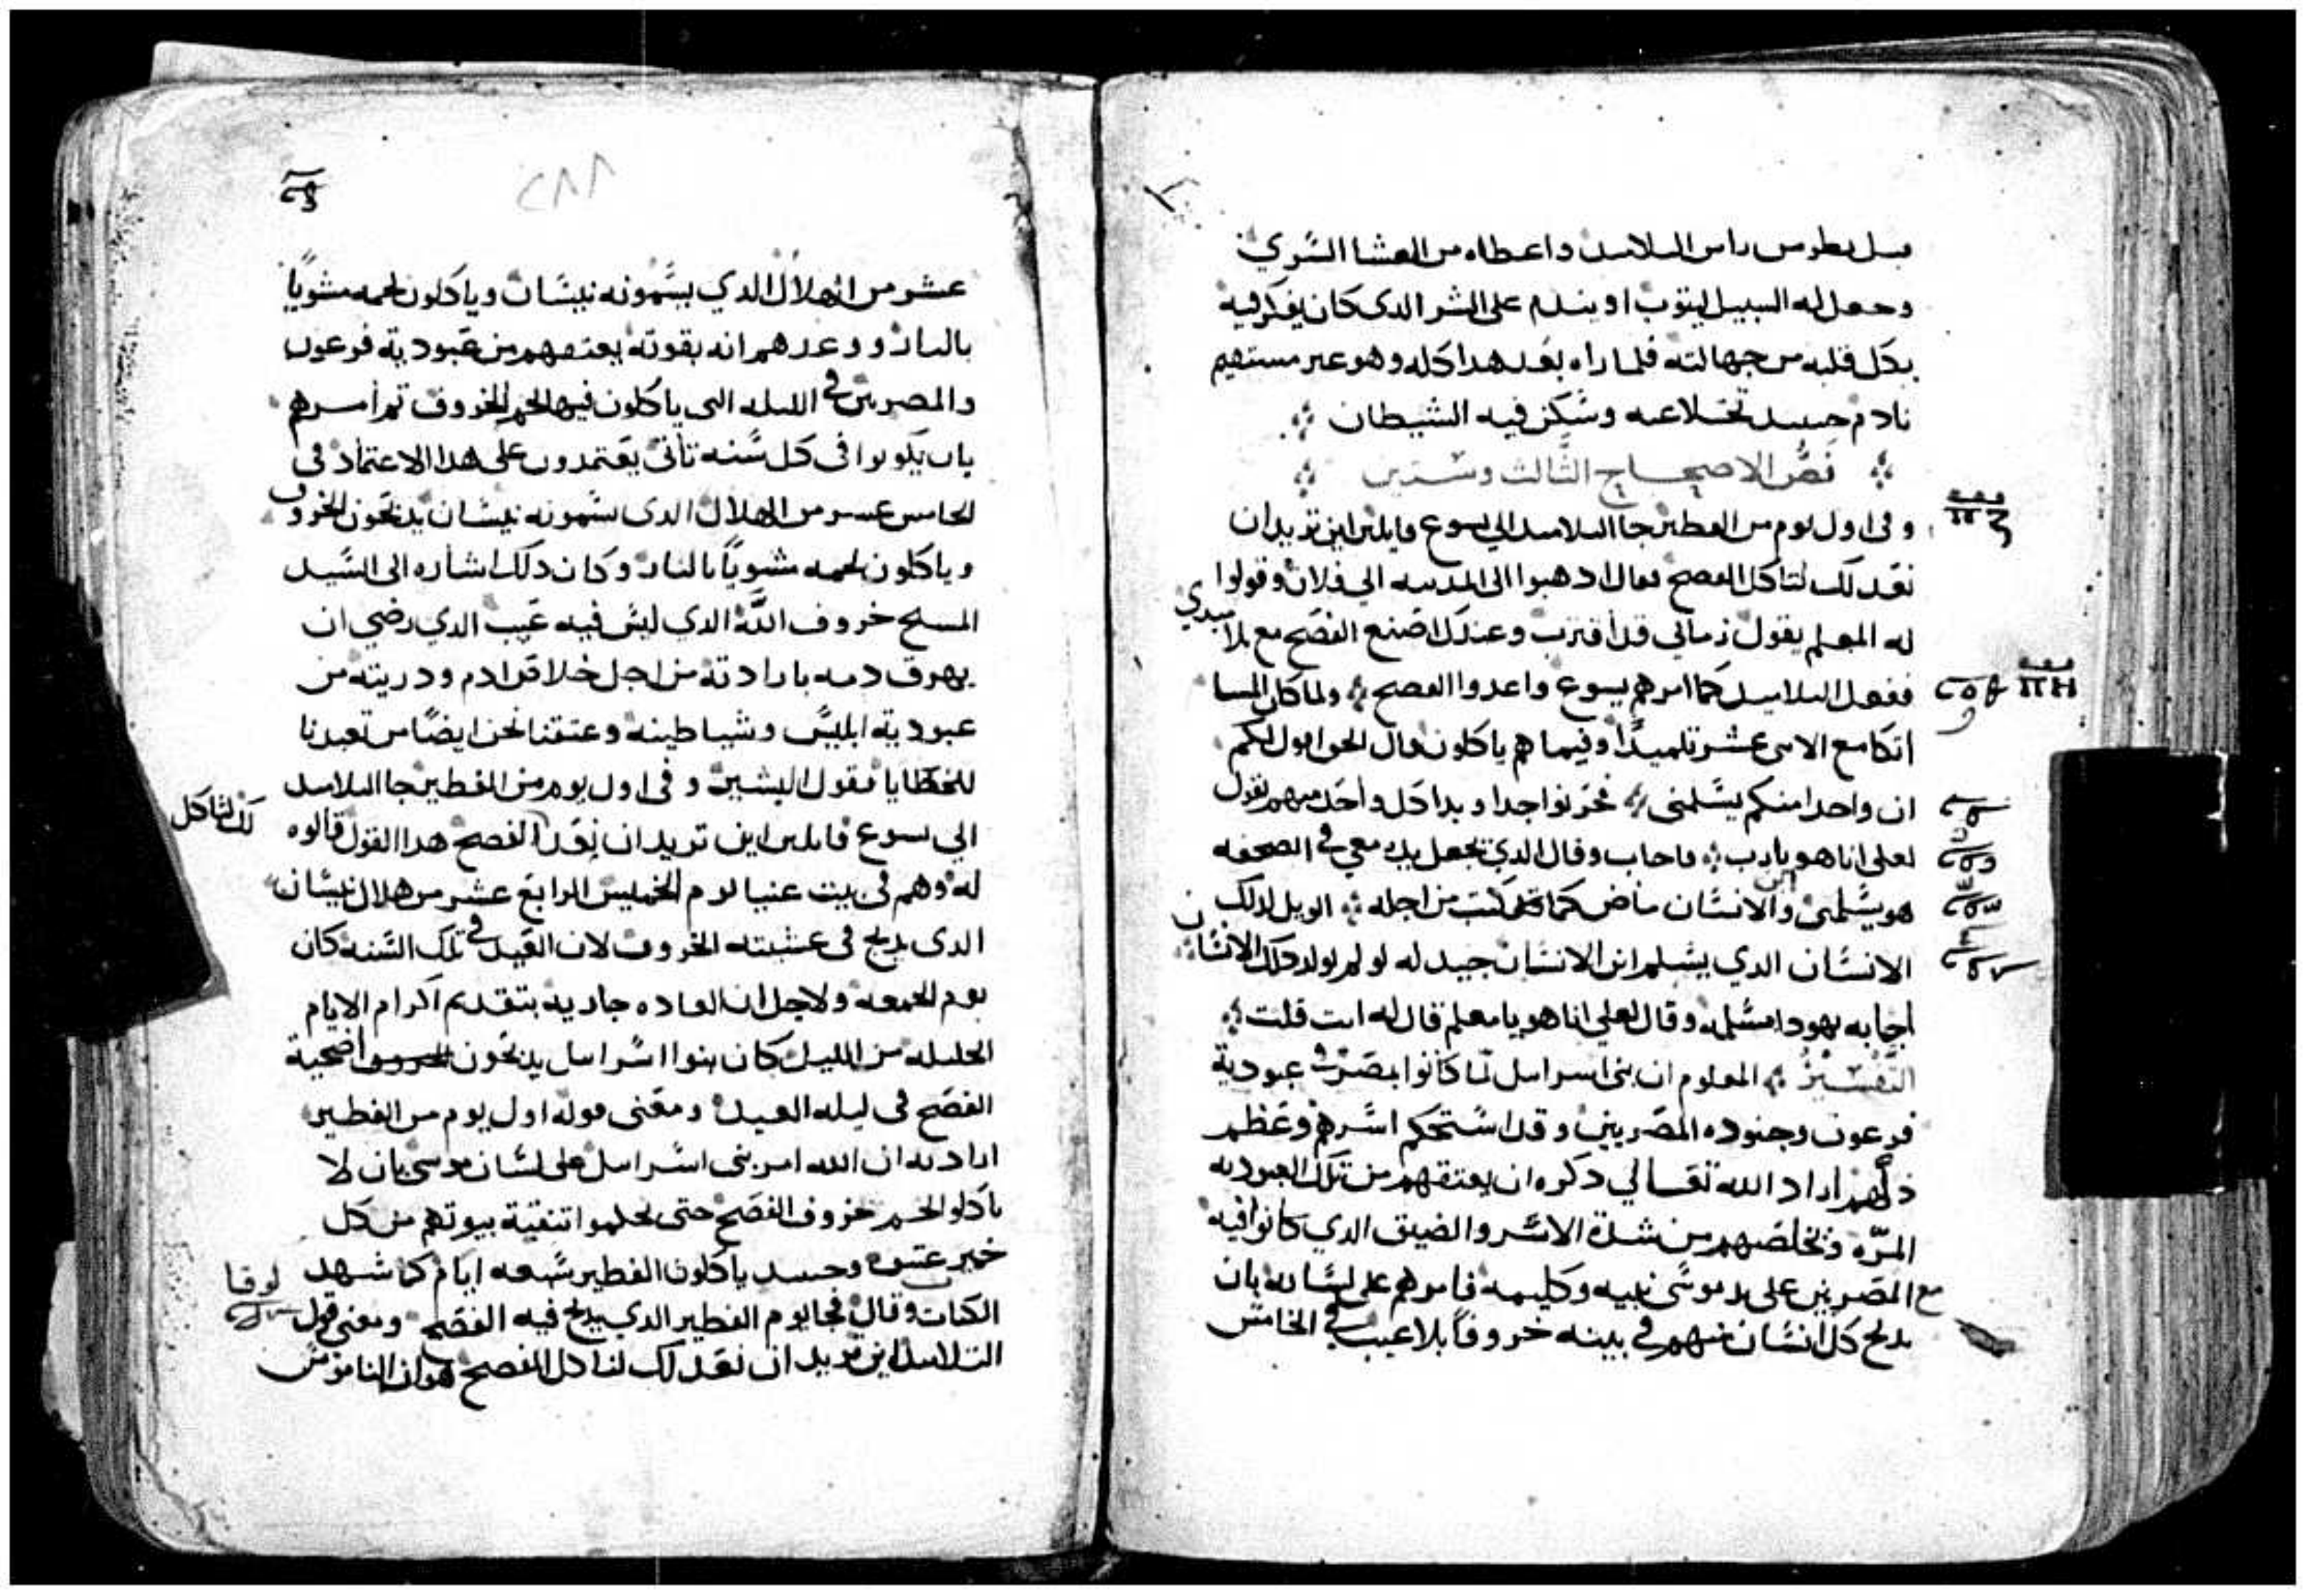 قبل بطرس راس التلاميد واعطاه من العشا السري
وجعل له السبيل ليتوب او يندم على الشر الدى كان يفكر فيه
بكل قلبه من جهالته فلما راه بعد هدا كله وهو غير مستقيم
نادم حينيد تخلا عنه وسكن فيه الشيطان
نص الاصحاح الثالث وستين
وفى اول يوم من الفطير جا التلاميد الي يسوع قايلين اين تريد ان
نعد لك لتاكل الفصح فقال ادهبوا الى المدينه الي فلان وقولوا
له المعلم يقول زماني قد اقترب وعندك اصنع الفصح مع تلاميدي
ففعل التلاميد كما امرهم يسوع واعدوا الفصح ولما كان المسا
اتكا مع الاتنى عشر تلميدًا وفيما هم ياكلون قال الحق اقول لكم
ان واحدا منكم يسلمنى فحزنوا جدا وبدا كل واحد منهم يقول
لعلى انا هو يا رب فاجاب وقال الدي يجعل يده معي في الصحفه
هو يسلمنى وابن الانسان ماض كما كتب من اجله الويل لدلك
الانسان الدي يسلم ابن الانسان جيد له لو لم يولد دلك الانسان
اجابه يهودا مسلمه وقال لعلي انا هو يا معلم قال له انت قلت
التفسير المعلوم ان بنى اسراييل لما كانوا بمصر في عبودية
فرعون وجنوده المصريين وقد استحكم اسرهم وعظم
دلهم اراد الله تعالي دكره ان يعتقهم من تلك العبوديه
المرّه وتخلصهم من شدة الاسر والضيق الدي كانوا فيه
مع المصريين على يد موسى نبيه وكليمه فامرهم على لسانه بان
يدبح كل انسان منهم في بيته خروفاً بلا عيب في الخامس
٢٨٨
عشر من الهلال الدي يسمونه نيسان وياكلون لحمه مشوياً
بالنار ووعدهم انه بقوته يعتقهم من عبودية فرعون
والمصريين في الليله التى ياكلون فيها لحم الخروف تم امرهم
بان يكونوا فى كل سنه تاتى يعتمدون على هدا الاعتماد فى
الخامس عشر من الهلال الدى يسمونه نيسان يدبحون الخروف
وياكلون لحمه مشوياً بالنار وكان دلك اشاره الى السيد
المسيح خروف اللّه الدي ليس فيه عيب الدي رضي ان
يهرق دمه بارادته من اجل خلاص ادم ودريته من
عبودية ابليس وشياطينه وعتقنا نحن ايضًا من تعبدنا
للخطايا فقول البشير وفى اول يوم من الفطير جا التلاميد
الي يسوع قايلين اين تريد ان نعد لك لتاكل الفصح هدا القول قالوه
له وهم فى بيت عنيا يوم الخميس الرابع عشر من هلال نيسان
الدى يدبح فى عشيته الخروف لان العيد في تلك السنه كان
يوم الجمعه ولاجل ان العاده جاريه بتقديم اكرام الايام
الجليله من الليل كان بنوا اسراييل يدبحون اضحية
الفصح فى ليله العيد ومعنى قوله اول يوم من الفطير
اراد به ان الله امر بنى اسراييل على لسان موسى بان لا
ياكلو الخروف الفصح حتى يحلموا تنقية بيوتهم من كل
خمير عتيق وحينيد ياكلون الفطير سبعه ايام كما شهد لوقا
الكتاب وقال فجا يوم الفطير الدي يدبح فيه الفصح ومعنى قول
التلاميد اين تريد ان نعد لك لتاكل الفصح هو ان الناموس